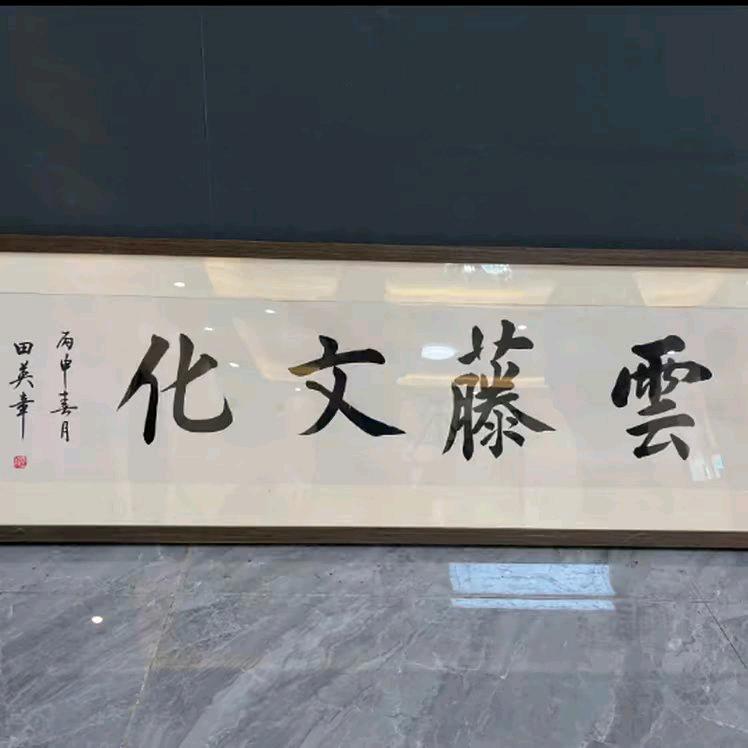 雲藤文化
丙申春月
田英章